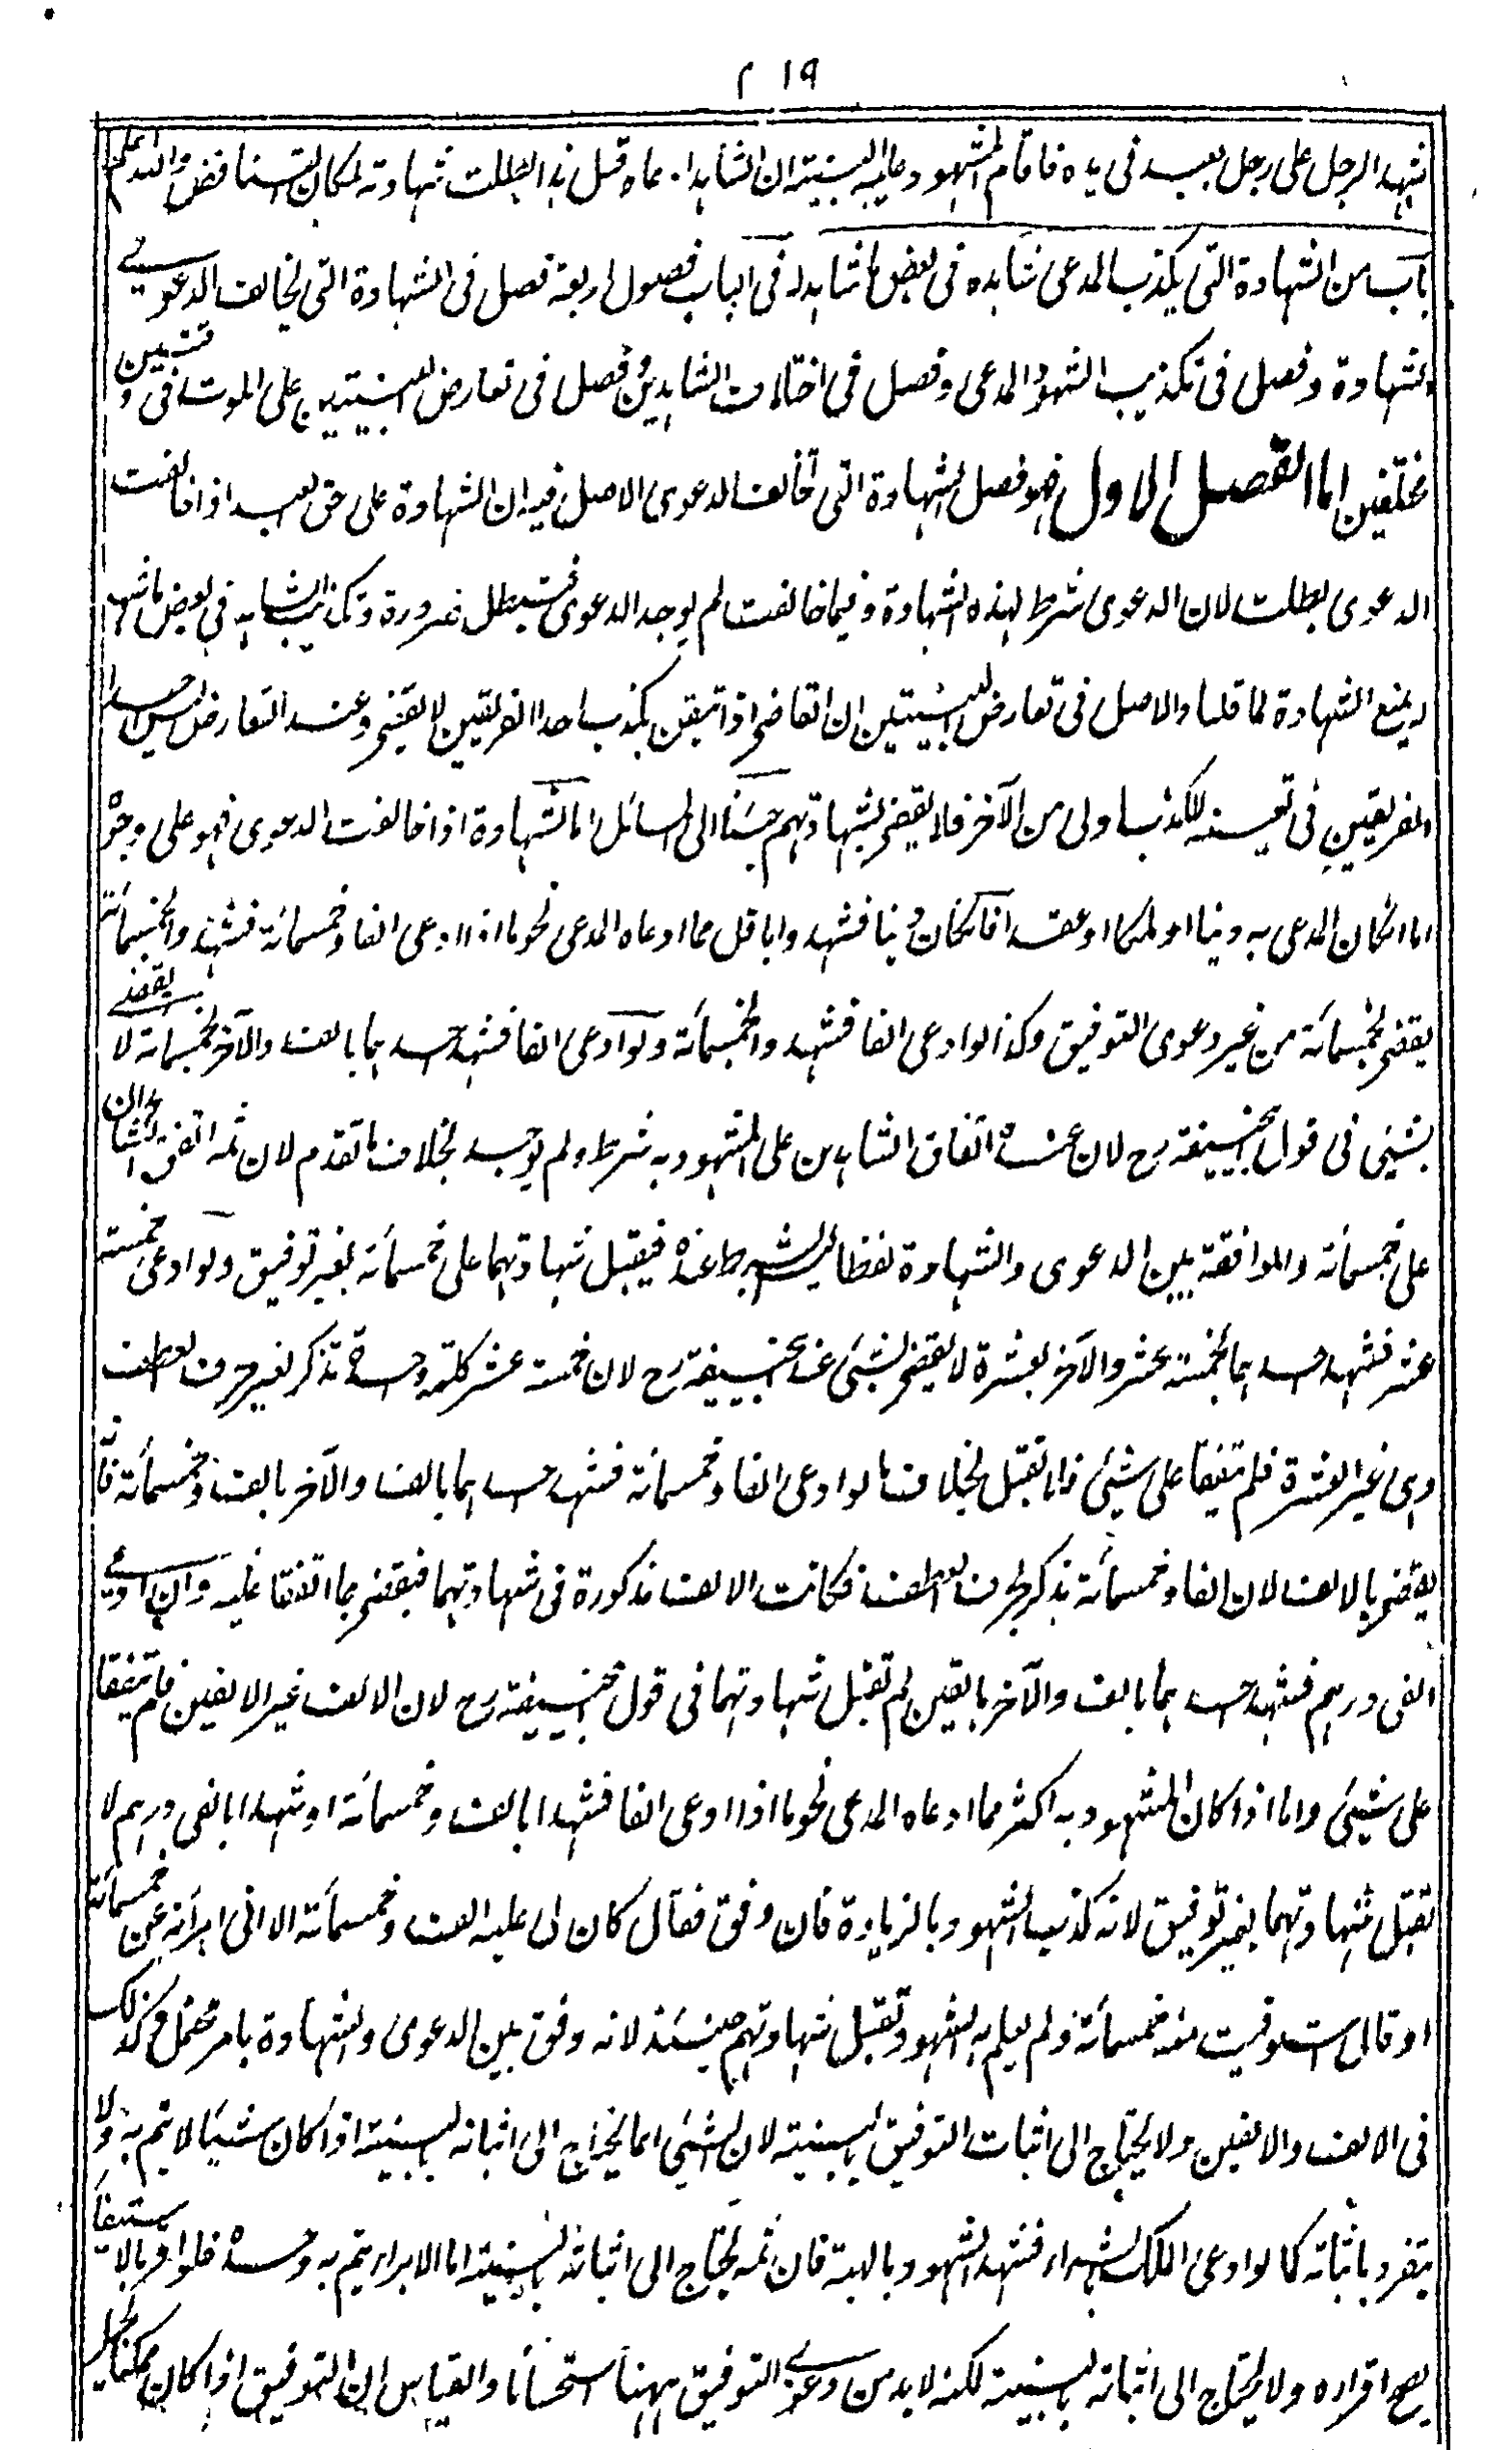 ٢١٩
شهد الرجل على رجل بعبد فى يده فاقام المشهود عليه البينة ان الشاهد ادعاه قبل هذا بطلت شهادته لمكان التناقض والله اعلم
باب من الشهادة التى يكذب المدعى شاهده فى بعض ما شهد له فى الباب فصول اربعة فصل فى الشهادة التى تخالف الدعوى
والشهادة وفصل فى تكذيب الشهود المدعى وفصل فى اختلاف الشاهدين وفصل فى تعارض البينتين على الموت فى وقتين
مختلفين اما الفصل الاول فهو فصل الشهادة التى تخالف الدعوى الاصل فيه ان الشهادة على حق العبد اذا خالفت
الدعوى بطلت لان الدعوى شرط لهذه الشهادة وفيما خالفت لم يوجد الدعوى فتبطل ضرورة وتكذيب الشاهد فى بعض ما شهد
له يمنع الشهادة لما قلنا والاصل فى تعارض البينتين ان القاضى اذا تيقن بكذب احد الفريقين لا يقضى وعند التعارض ليس احد
الفريقين فى تعيينه للكذب اولى من الآخر فلا يقضى بشهادتهم جئنا الى المسائل اما الشهادة اذا خالفت الدعوى فهو على وجوه
اما ان كان المدعى به دينا او ملكا او عقدا فان كان دينا فشهدوا باقل مما ادعاه المدعى نحو ما اذا ادعى الفا وخمسمائة فشهدوا بخمسمائة
يقضى بخمسمائة من غير دعوى التوفيق وكذا لو ادعى الفا فشهدوا بخمسمائة ولو ادعى الفا فشهد احدهما بالف والآخر بخمسمائة لا يقضى
بشيئ فى قول ابيحنيفة رح لان عنده اتفاق الشاهدين على المشهود به شرط ولم يوجد بخلاف ما تقدم لان ثمه اتفق الشاهدان
على خمسمائة والموافقة بين الدعوى والشهادة لفظا ليس بشرط عنده فيقبل شهادتهما على خمسمائة بغير توفيق ولو ادعى خمسة
عشر فشهد احدهما بخمسة عشر والآخر بعشرة لا يقضى بشيئ عند ابيحنيفة رح لان خمسة عشر كلمة واحدة تذكر بغير حرف العطف
وهى غير العشرة فلم يتفقا على شيئ فلا تقبل بخلاف ما لو ادعى الفا وخمسمائة فشهد احدهما بالف والآخر بالف وخمسمائة فانه
يقضى بالالف لان الفا وخمسمائة يذكر بحرف العطف فكانت الالف مذكورة فى شهادتهما فيقضى بما اتفقا عليه وان ادعى
الفى درهم فشهد احدهما بالف والآخر بالفين لم تقبل شهادتهما فى قول ابيحنيفة رح لان الالف غير الالفين فلم يتفقا
على شيئ واما اذا كان المشهود به اكثر مما ادعاه المدعى نحو ما اذا ادعى الفا فشهدا بالف وخمسمائة او شهدا بالفى درهم لا
تقبل شهادتهما بغير توفيق لانه كذب الشهود بالزيادة فان وفق فقال كان لى عليه الف وخمسمائة الا انى ابرأته عن خمسمائة
او قال استوفيت منه خمسمائة ولم يعلم به الشهود تقبل شهادتهم حينئذ لانه وفق بين الدعوى والشهادة بامر محتمل وكذلك
فى الالف والالفين ولا يحتاج الى اثبات التوفيق بالبينة لان الشيئ انما يحتاج الى اثباته بالبينة اذا كان شيئا لا يتم به ولا
يتفرد باثباته كما لو ادعى الملك بالشراء فشهد الشهود بالهبة فان ثمه يحتاج الى اثباته بالبينة اما الابراء يتم به وحده فلو اقر بالاستيفاء
يصح اقراره ولا يحتاج الى اثباته بالبينة لكنه لا بد من دعوى التوفيق ههنا استحسانا والقياس ان التوفيق اذا كان ممكنا يحمل